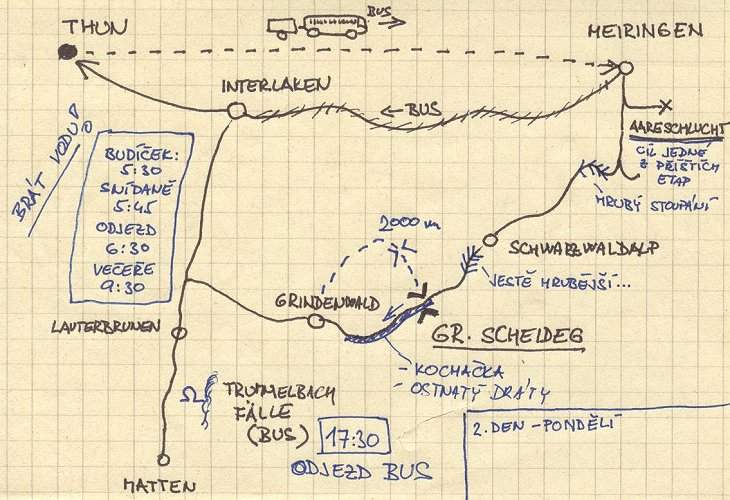 BUS
THUN
MEIRINGEN
INTERLAKEN
←BUS
BRÁT VODU!
BUDÍČEK:
5:30
SNÍDANĚ
5:45
ODJEZD
6:30
VEČEŘE
9:30
AARESCHLUCHT
CÍL JEDNÉ
Z PŘÍŠTÍCH
ETAP
HRUBÝ STOUPÁNÍ
2000 m
SCHWARZWALDALP
JEŠTĚ HRUBĚJŠÍ...
GRINDENWALD
LAUTERBRUNEN
GR. SCHEIDEG
- KOCHAČKA
- OSTNATÝ DRÁTY
TRUMMELBACH
FÄLLE
(BUS)
17:30
ODJEZD BUS
2. DEN - PONDĚLÍ
MATTEN